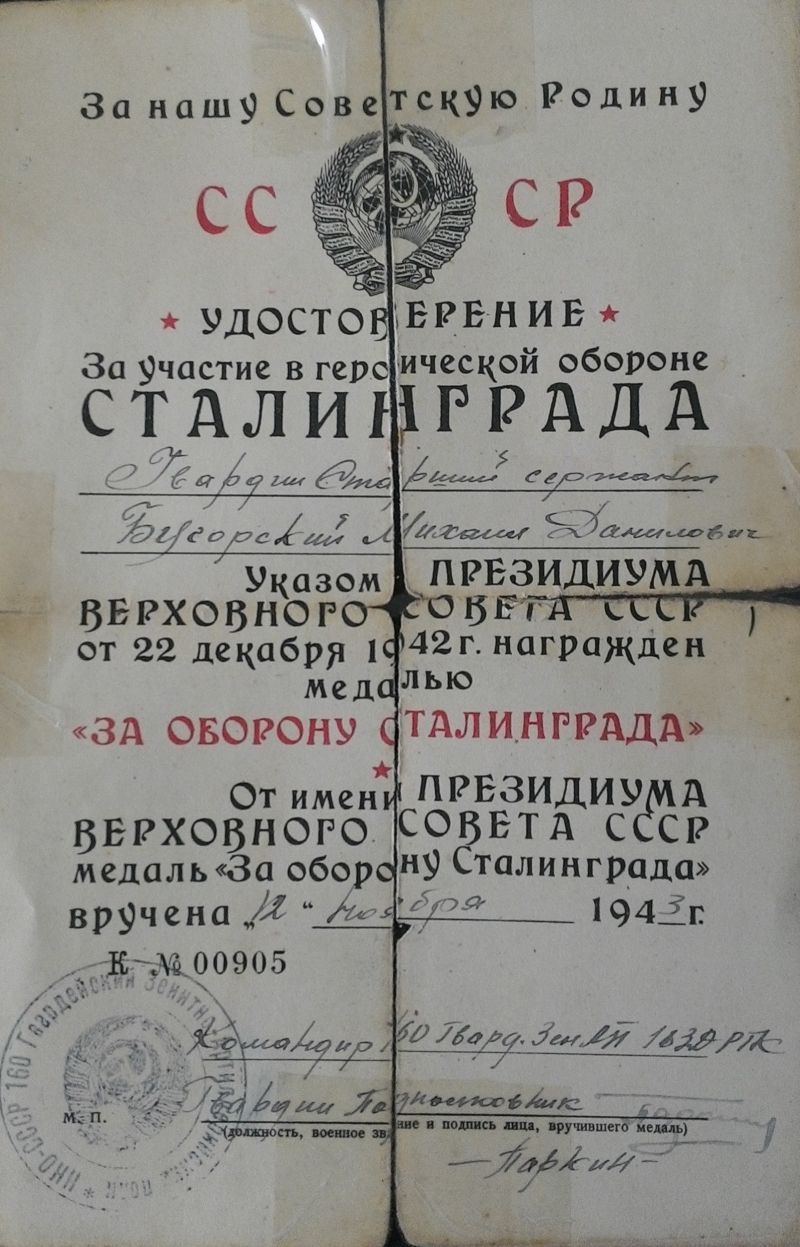 За нашу Советскую Родину
СССР
УДОСТОВЕРЕНИЕ
За участие в героической обороне
СТАЛИНГРАДА
Гвардии Старший сержант
Бугорский Михаил Данилович
Указом ПРЕЗИДИУМА
ВЕРХОВНОГО СОВЕТА СССР
от 22 декабря 1942 г. награжден
медалью
«ЗА ОБОРОНУ СТАЛИНГРАДА»
От имени ПРЕЗИДИУМА
ВЕРХОВНОГО СОВЕТА СССР
медаль «За оборону Сталинграда»
вручена „12“ ноября 1943 г.
К № 00905
НКО-СССР 160 Гвардейский Зенитно
Командир 160 Гвард. Зен АП
Гвардии Подполковник
М. П.
(должность, военное звание и подпись лица, вручившего медаль)
-Паркин-